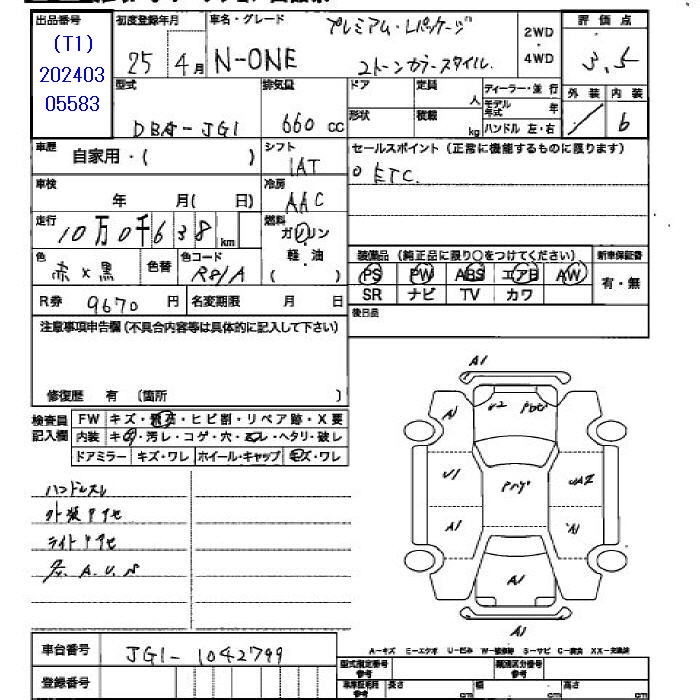 出品番号
(T1)
202403
05583
初度登録年月
25 4月
車名・グレード
N-ONE
プレミアム・Lパッケージ
2トーンカラースタイル
2WD
・
4WD
評価点
3.5
型式
DBA-JG1
排気量
660 cc
ドア
定員
人
形状
積載
kg
ディーラー・並行
モデル年式 年
ハンドル 左・右
外装
内装
6
車歴
自家用・( )
シフト
IAT
セールスポイント (正常に機能するものに限ります)
ETC.
車検
年 月( 日)
冷房
AAC
走行
10万0千638 km
燃料
ガソリン
軽・油
( )
装備品 (純正品に限り○をつけてください)
新車保証書
PS PW ABS エアB AW
有・無
SR ナビ TV カワ
色
赤×黒
色替
色コード
R81A
R券 9670 円
名変期限 月 日
後日品
注意事項申告欄 (不具合内容等は具体的に記入して下さい)
修復歴 有 (箇所 )
検査員
記入欄
FW キズ・飛石・ヒビ割・リペア跡・X要
内装 キズ・汚レ・コゲ・穴・ヘタリ・破レ
ドアミラー キズ・ワレ ホイール・キャップ キズ・ワレ
ハンドルスレ
外装アセ
ライトアセ
A.U.
A1
A1
U2
U1
A1
A1
A1
A1
A-キズ E-エクボ U-凹み W-補修跡 S-サビ C-腐食 XX-交換済
車台番号
JG1-1042799
登録番号
型式指定番号
参考
類別区分番号
参考
長さ cm 幅 cm 高さ cm